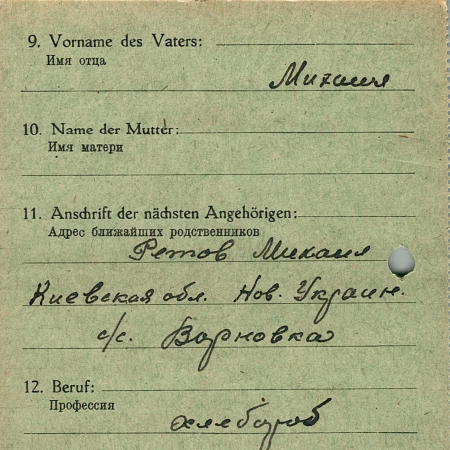 9. Vorname des Vaters:
Имя отца
Михаил
10. Name der Mutter:
Имя матери
11. Anschrift der nächsten Angehörigen:
Адрес ближайших родственников
Ретов Михаил
Киевская обл. Нов. Украин.
с/с. Варновка
12. Beruf:
Профессия
хлебороб